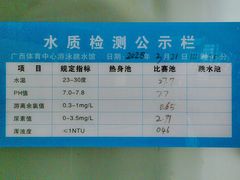 水质检测公示栏
广西体育中心游泳跳水馆 日期 2025年 月21日
项目 规定指标 热身池 比赛池 跳水池
水温 23-30度 27.7
PH值 7.0-7.8 7.7
游离余氯值 0.3-1mg/L 0.65
尿素值 0-3.5mg/L 2.71
浑浊度 <1NTU 0.46